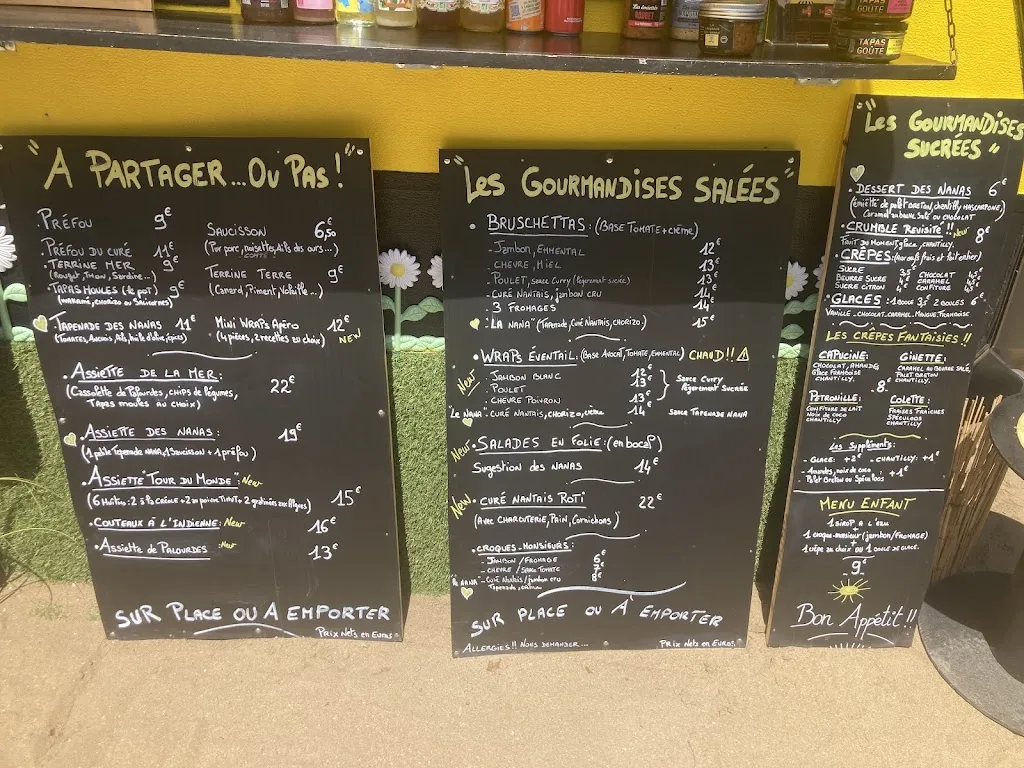 TAPAS
GOÛTE
"A PARTAGER... OU PAS!"
PRÉFOU 9€
PRÉFOU DU CURÉ 11€
TERRINE MER 9€
(Rouget, Thon, Sardine...)
TAPAS MOULES (le pot) 9€
SAUCISSON 6,50
(Pur porc, noisettes, Ails des ours...)
TERRINE TERRE 9€
(Canard, Piment, Volaille...)
TAPENADE DES NANAS 11€
MINI WRAPS APÉRO 12€
(4 pièces, 2 recettes au choix) NEW
. ASSIETTE DE LA MER:
(Cassolette de Palourdes, chips de légumes, 22€
TAPAS moules au choix)
. ASSIETTE DES NANAS: 19€
(1 petite Tapenade NANA, 1 Saucisson + 1 préfou)
. ASSIETTE "TOUR DU MONDE": New
15€
. COUTEAUX À L'INDIENNE: New 16€
. ASSIETTE DE PALOURDES :New 13€
SUR PLACE OU A EMPORTER
PRIX NETS EN EUROS
"LES GOURMANDISES SALÉES"
. BRUSCHETTAS: (BASE TOMATE + CRÈME)
- JAMBON, EMMENTAL 12€
- CHEVRE, MIEL 13€
- POULET, sauce CURRY (légèrement sucrée) 13€
- CURÉ NANTAIS, jambon cru 14€
- 3 FROMAGES 14€
"LA NANA" (Tapenade, Curé Nantais, Chorizo) 15€
. WRAPS ÉVENTAIL: (BASE AVOCAT, TOMATE, EMMENTAL) CHAUD!!
New
- JAMBON BLANC 12€
- POULET 13€
- CHEVRE POIVRON 13€
SAUCE CURRY
légèrement SUCRÉE
"LE NANA" CURÉ NANTAIS, CHORIZO, crème 14€ SAUCE TAPENADE NANA
New . SALADES EN FOLIE: (en bocal)
Sugestion des NANAS 14€
New . CURÉ NANTAIS ROTI 22€
(AVEC CHARCUTERIE, PAIN, Cornichons)
. CROQUES-MONSIEURS:
- JAMBON / FROMAGE 6€
- CHEVRE / SAUCE TOMATE 7€
- Curé Nantais / jambon cru 8€
SUR PLACE OU A EMPORTER
ALLERGIES!! NOUS DEMANDER... PRIX NETS EN EUROS
"LES GOURMANDISES
SUCRÉES"
. DESSERT DES NANAS 6€
(émietté de palet BRETON, chantilly MASCARPONE,
Caramel au beurre salé ou CHOCOLAT)
. CRUMBLE REVISITÉ!! New 8€
FRUIT DU MOMENT, glace, CHANTILLY.
. CRÊPES: (Aux oeufs frais et lait entier)
SUCRE 3,5€
BEURRE SUCRE 4€
SUCRE CITRON 4€
CHOCOLAT 4,5€
CARAMEL 4,5€
CONFITURE 4,5€
. GLACES: 1 BOULE 3,5€ 2 BOULES 6€
VANILLE, CHOCOLAT, CARAMEL, MANGUE, FRAMBOISE
LES CRÊPES FANTAISIES!!
CAPUCINE:
CHOCOLAT, AMANDE,
GLACE FRAMBOISE
CHANTILLY.
GINETTE:
CARAMEL AU BEURRE SALÉ,
PALET BRETON
CHANTILLY.
. 8€
PETRONILLE:
CONFITURE DE LAIT
NOIX DE COCO
CHANTILLY
COLETTE:
FRAISES FRAICHES
SPÉCULOOS
CHANTILLY
Les Suppléments:
- GLACE: +2€ - CHANTILLY: +1€
- Amandes, noix de coco
Palet Breton ou Spéculoos +1€
MENU ENFANT
1 SIROP A L'EAU
+
1 croque-monsieur (jambon/FROMAGE)
+
1 crêpe au choix OU 1 BOULE DE GLACE.
9€
BON APPÉTIT!!